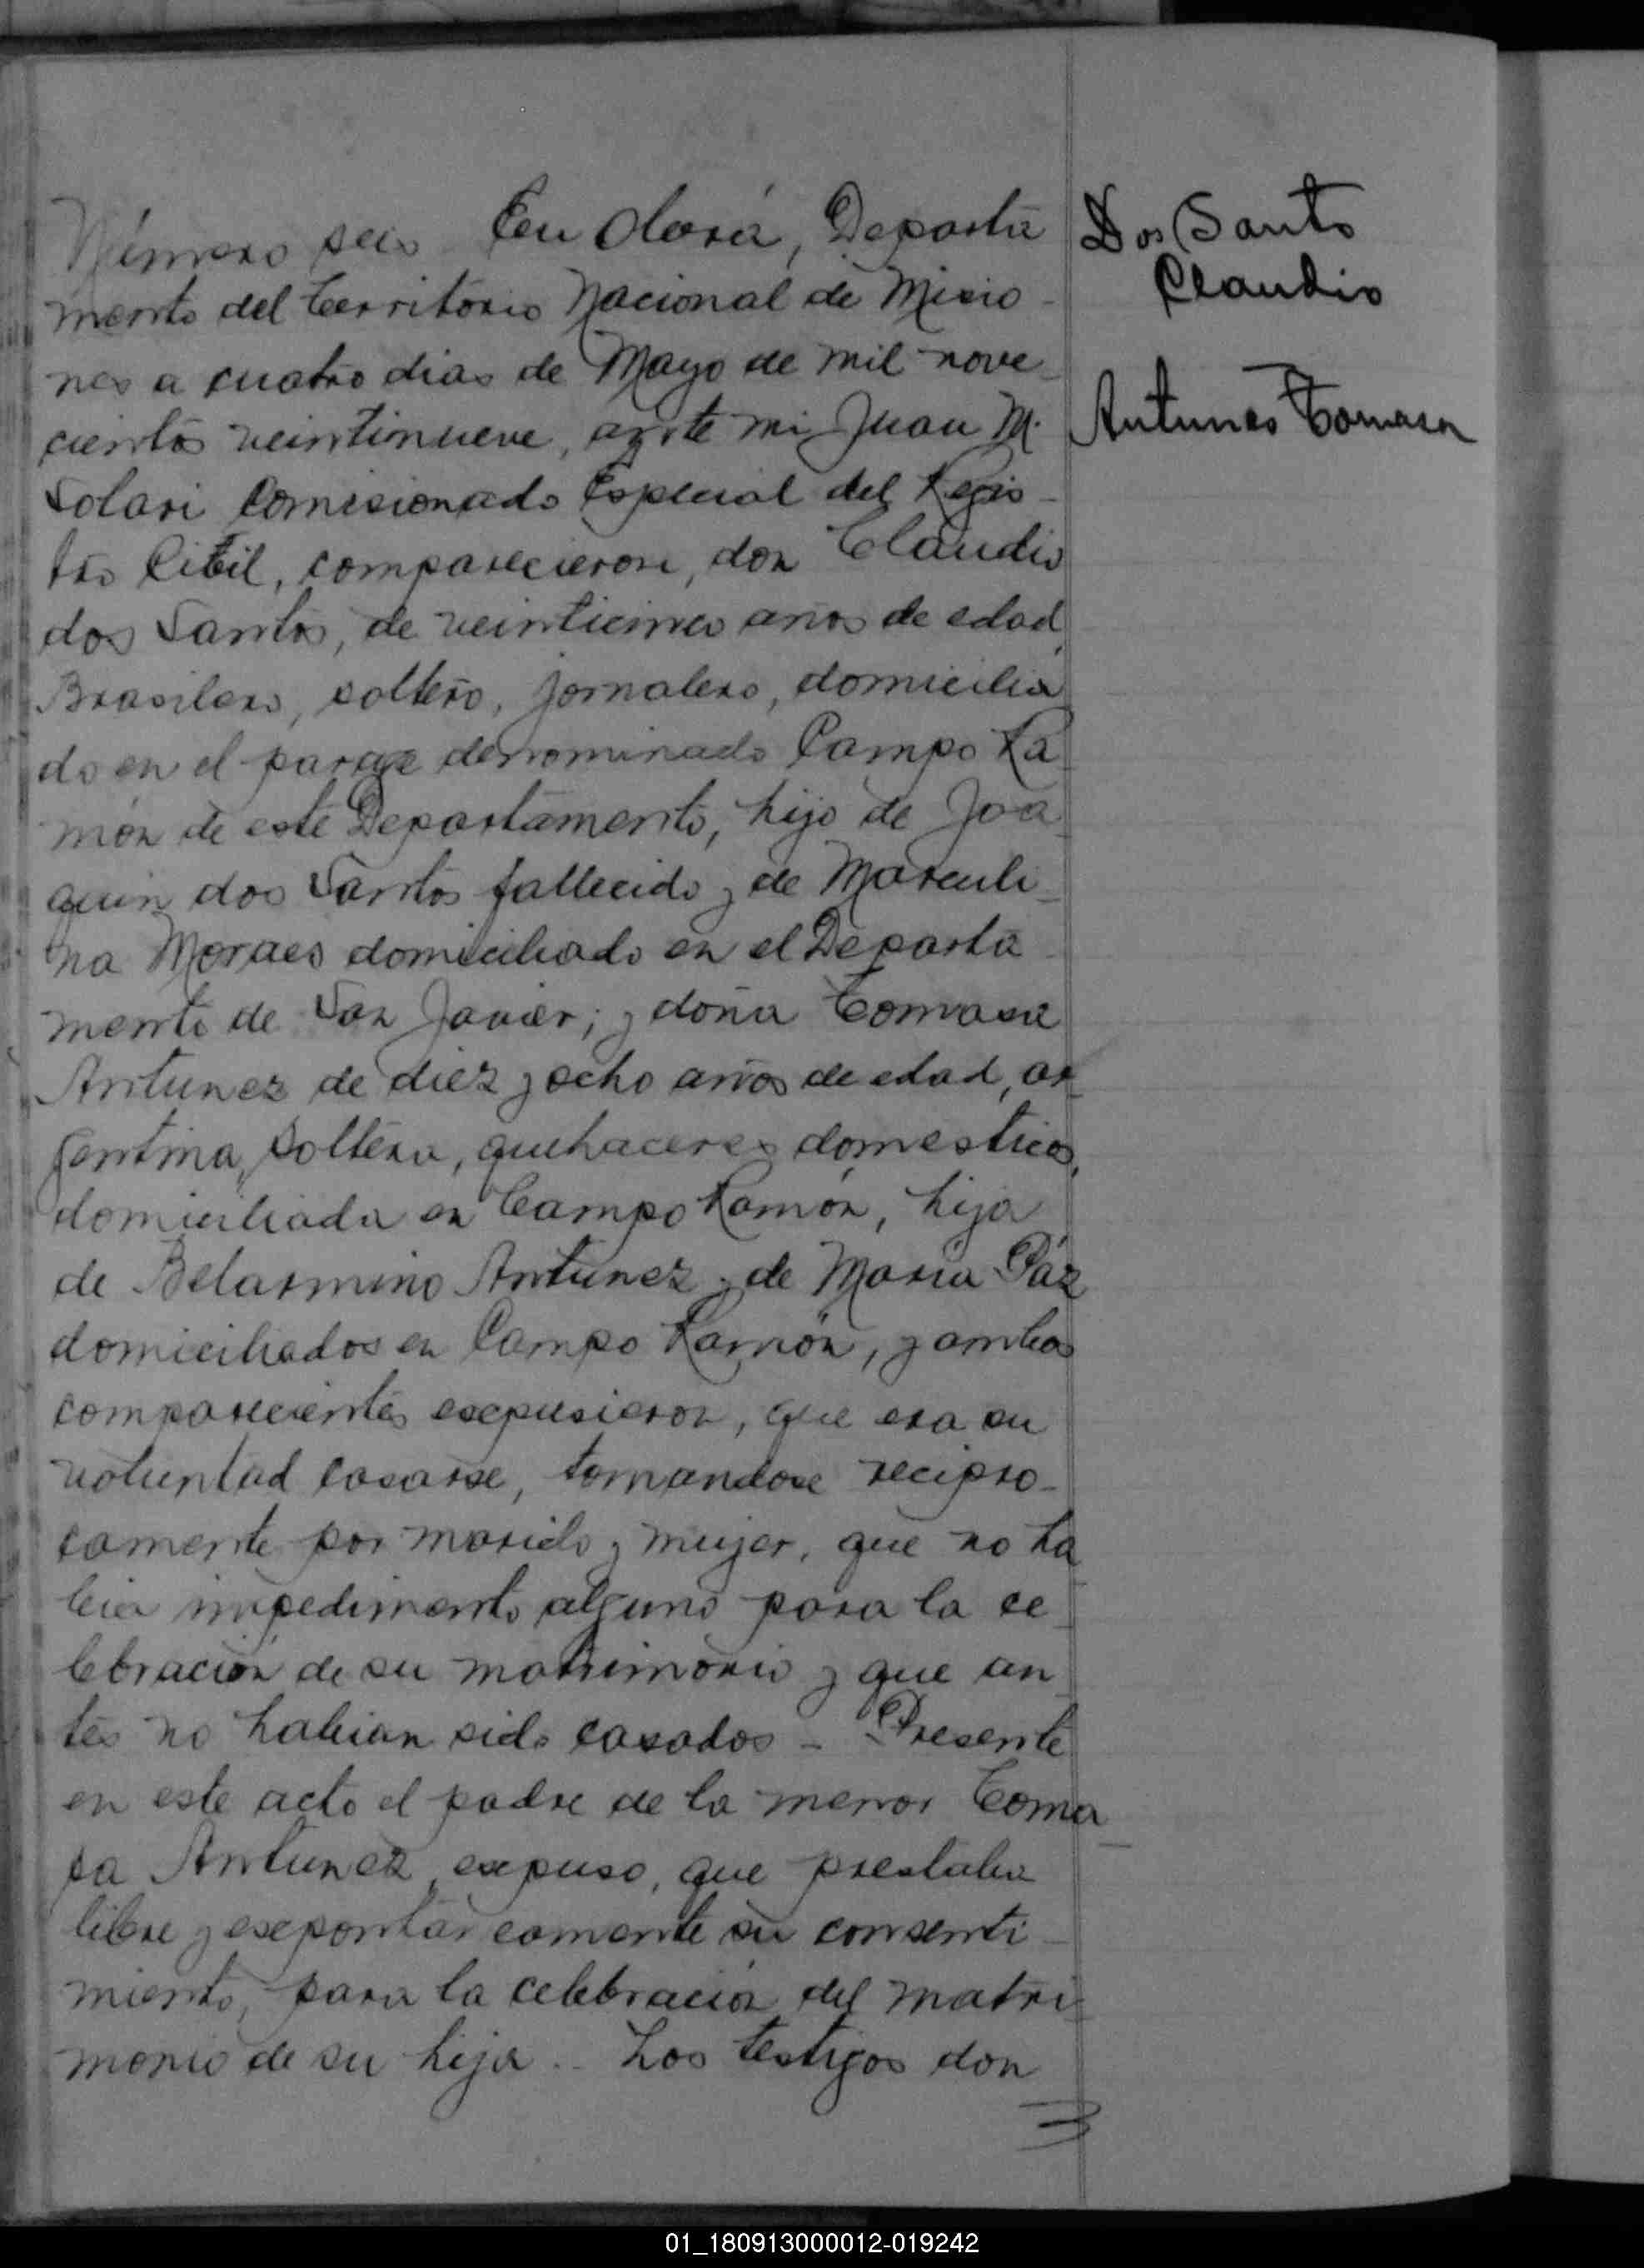 Número seis En Oberá, Departa
mento del Territorio Nacional de Misio-
nes a cuatro dias de Mayo de mil nove_
cientos veintinueve, ante mi Juan M.
Solari Comisionado Especial del Regis-
tro Cibil, comparecieron, don Claudio
dos Santos, de veinticinco años de edad,
Brasilero, soltero, jornalero, domicilia
do en el paraje denominado Campo Ra_
món de este Departamento, hijo de Joa_
quin dos Santos fallecido y de Marculi_
na Moraes domiciliado en el Departa_
mento de San Javier; y doña Tomasa
Antunez de diez y ocho años de edad, ar_
gentina, soltera, quehaceres domesticos,
domiciliada en Campo Ramón, hija
de Belarmino Antunez y de Maria Páz
domiciliados en Campo Ramón, y ambos
comparecientes expusieron, que era su
voluntad casarse, tomandose recipro-
camente por marido y mujer, que no ha_
bia impedimento alguno para la ce_
lebración de su matrimonio y que an_
tes no habian sido casados - Presente
en este acto el padre de la menor Toma_
sa Antunez, expuso, que prestaba
libre y expontaneamente su consenti_
miento, para la celebración del matri_
monio de su hija.- Los testigos don
Dos Santo
Claudio
Antunes Tomasa
01_180913000012-019242